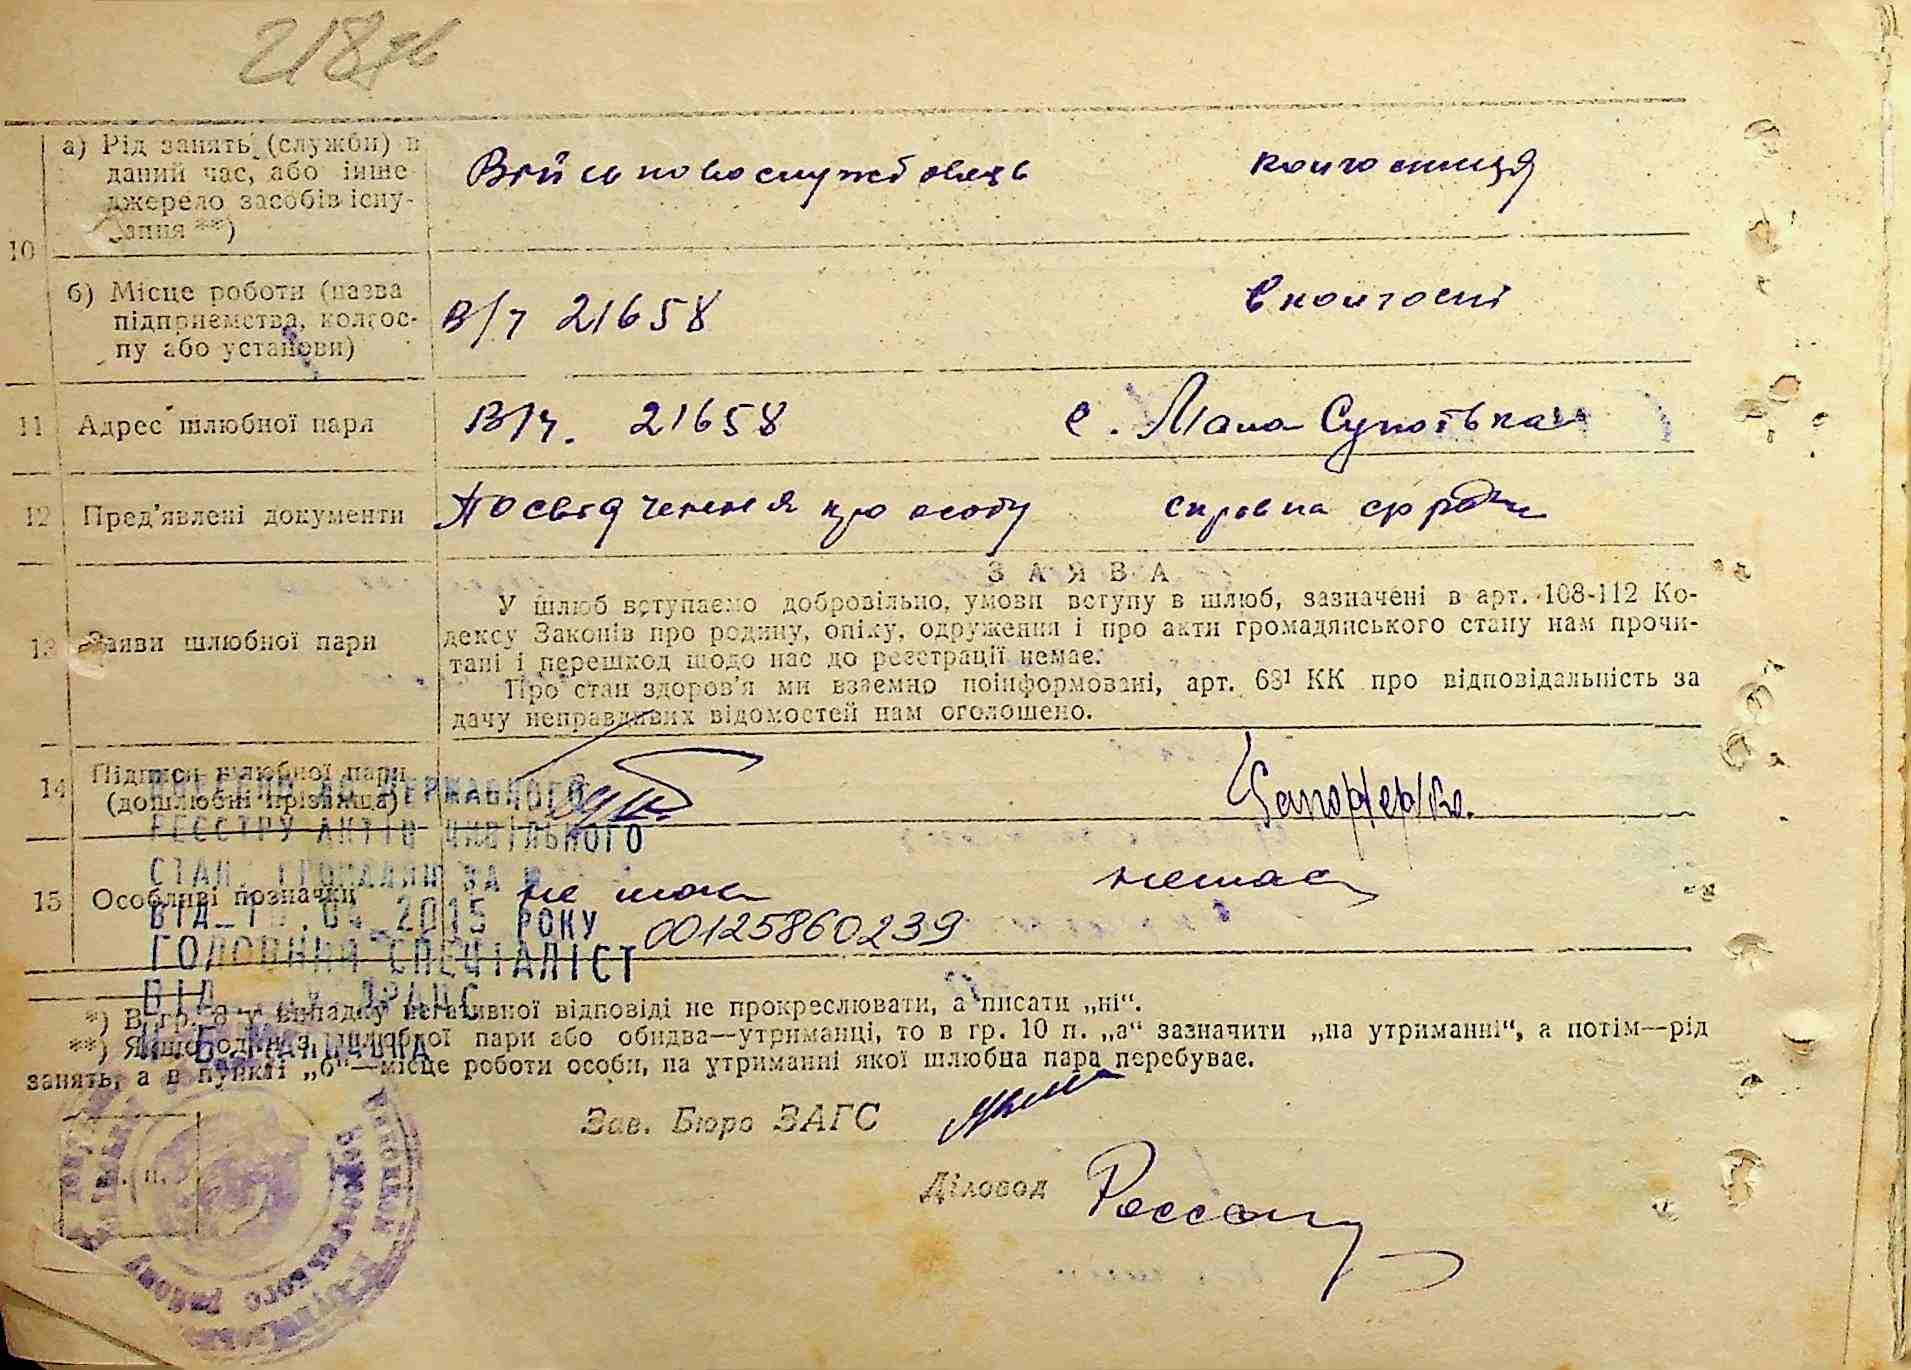 218
а) Рід занять (служби) в Військовослужбовець колгоспниця
даний час, або інше
джерело засобів існу-
вання **)
10
б) Місце роботи (назва в/ч 21658 в колгоспі
підприємства, колгос-
пу або установи)
11 Адрес шлюбної пари в/ч. 21658 с. Мала Супоївка
12 Пред'явлені документи Посвідчення про особу справка с/ради
З А Я В А
У шлюб вступаємо добровільно, умови вступу в шлюб, зазначені в арт. 108-112 Ко-
13 Заяви шлюбної пари дексу Законів про родину, опіку, одруження і про акти громадянського стану нам прочи-
тані і перешкод щодо нас до реєстрації немає.
Про стан здоров'я ми взаємно поінформовані, арт. 68¹ КК про відповідальність за
дачу неправдивих відомостей нам оголошено.
14 Підписи шлюбної пари
(дошлюбні прізвища)
ДЕРЖАВНОГО
РЕЄСТРУ АКТІВ ЦИВІЛЬНОГО
СТАНУ ГРОМАДЯН ЗА №
15 Особливі позначки не має немає
ВІД 2015 РОКУ 00125860239
ГОЛОВНИЙ СПЕЦІАЛІСТ
ДРАЦС
*) В гр. 8 у випадку негативної відповіді не прокреслювати, а писати „ні“.
**) Якщо один з шлюбної пари або обидва—утриманці, то в гр. 10 п. „а“ зазначити „на утриманні“, а потім—рід
занять, а в пункті „б“—місце роботи особи, на утриманні якої шлюбна пара перебуває.
Зав. Бюро ЗАГС
Діловод